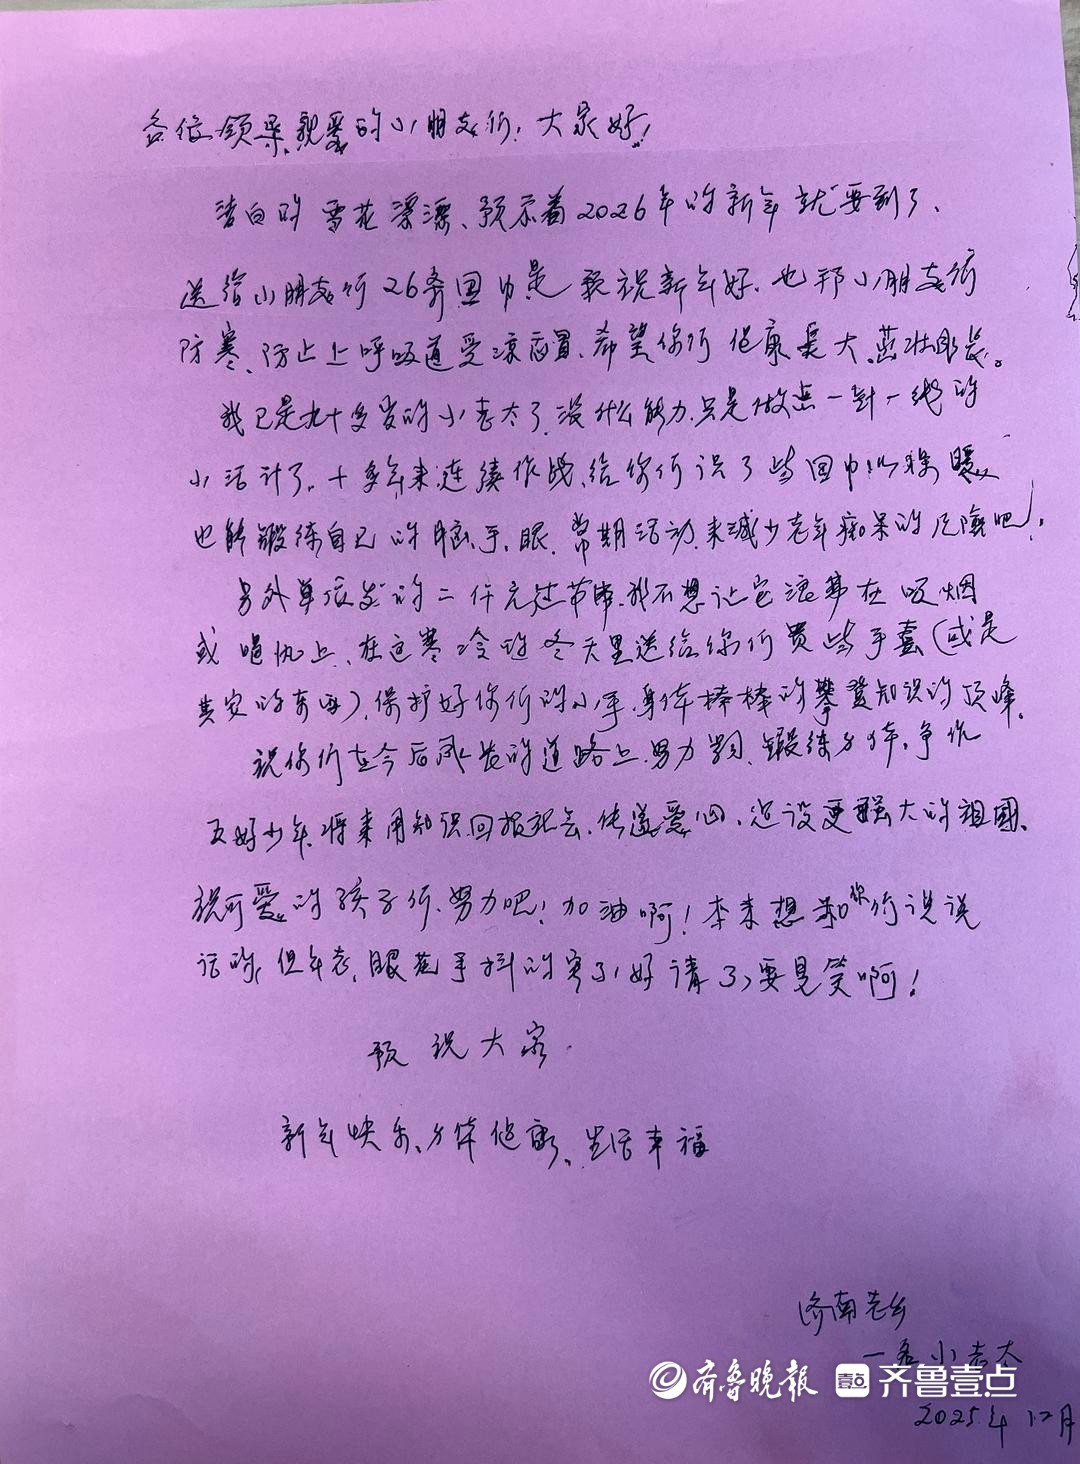 各位领导、亲爱的小朋友们，大家好！
洁白的雪花漂漂、预示着2026年的新年就要到了、
送给小朋友们26条围巾是预祝新年好、也帮小朋友们
防寒、防止上呼吸道受凉感冒、希望你们健康长大、茁壮成长。
我已是九十多岁的小老太了、没什么能力、只是做点一针一线的
小活计了。十多年来连续作战、给你们织了些围巾以保暖
也能锻练自己的脑、手、眼、常期活动、来减少老年痴呆的危险吧！
另外单位发的二仟元过节费、我不想让它浪费在吸烟
或喝酒上、在这寒冷的冬天里送给你们买些手套（或是
其它的东西）、保护好你们的小手、身体棒棒的攀登知识的顶峰。
祝你们在今后成长的道路上、努力学习、锻练身体、争做
五好少年、将来用知识回报社会、传递爱心、建设更强大的祖国、
祝可爱的孩子们、努力吧！加油啊！本来想和你们说说
话的、但年老、眼花手抖的字了，好请了，要见笑啊！
预祝大家
新年快乐、身体健康、生活幸福
济南老乡
一名小老太
齐鲁晚报 壹点 齐鲁壹点
2025年12月